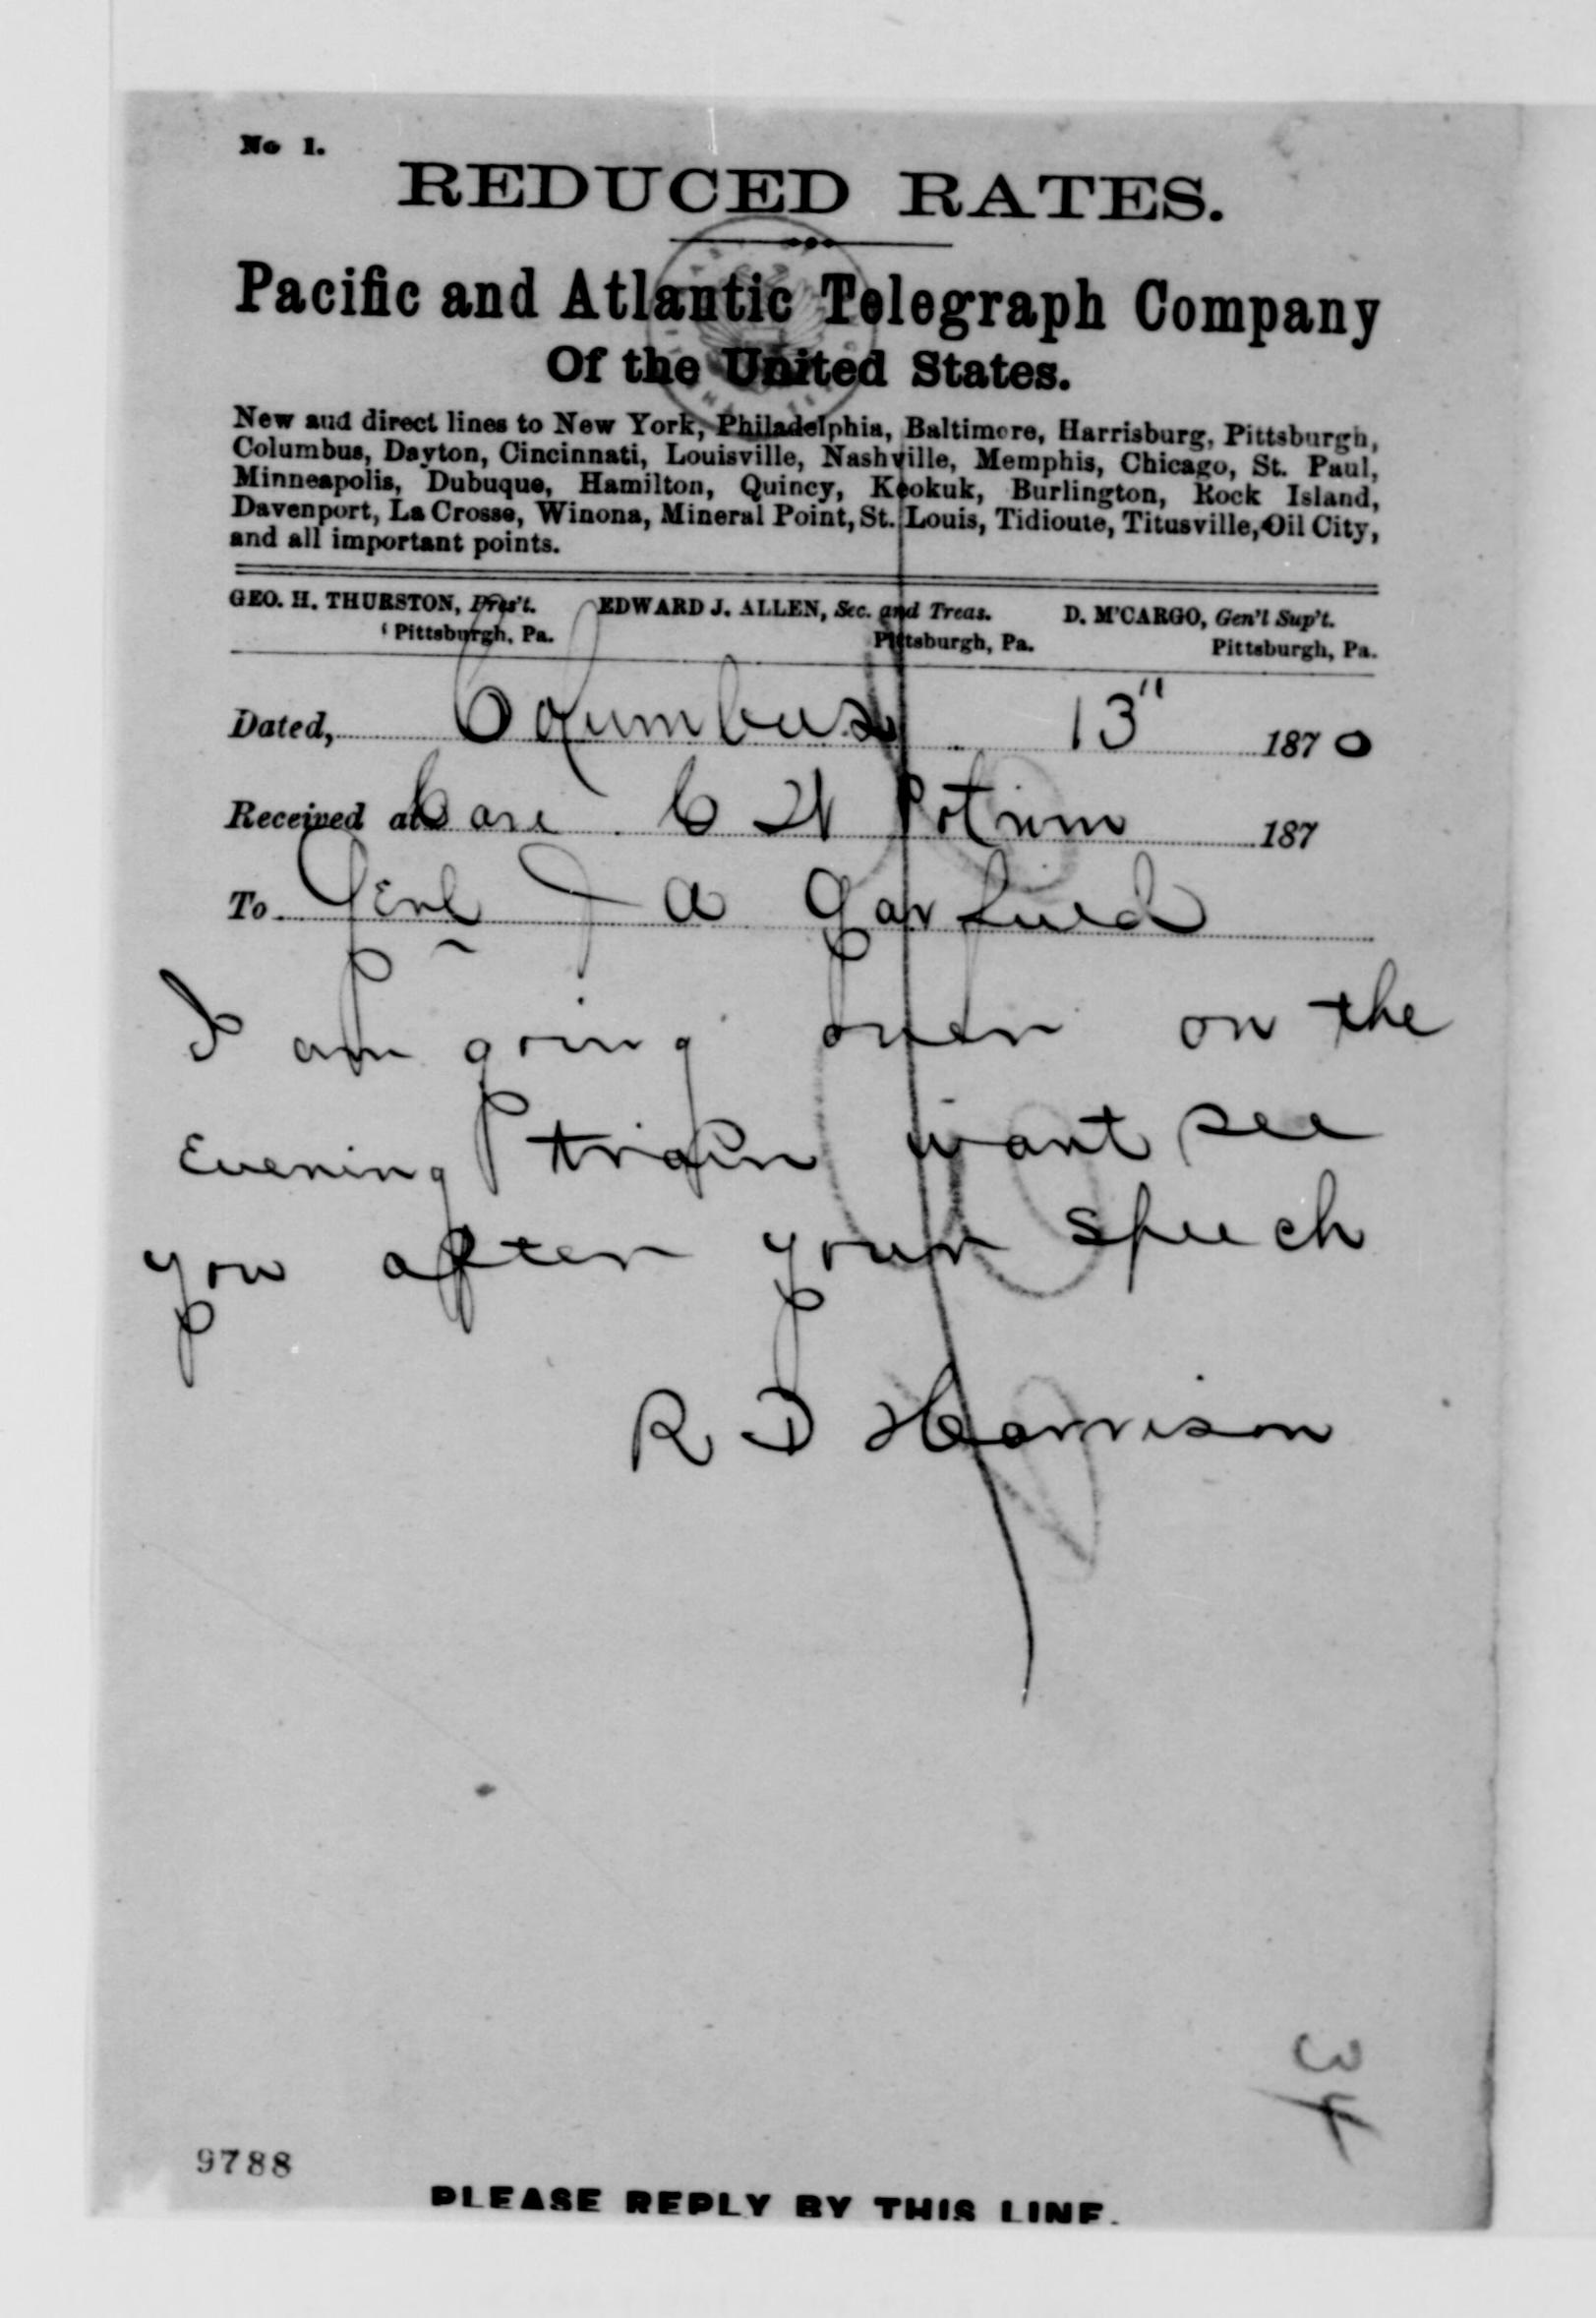 No 1.
REDUCED RATES.
Pacific and Atlantic Telegraph Company
Of the United States.
New and direct lines to New York, Philadelphia, Baltimore, Harrisburg, Pittsburgh,
Columbus, Dayton, Cincinnati, Louisville, Nashville, Memphis, Chicago, St. Paul,
Minneapolis, Dubuque, Hamilton, Quincy, Keokuk, Burlington, Rock Island,
Davenport, La Crosse, Winona, Mineral Point, St. Louis, Tidioute, Titusville, Oil City,
and all important points.
GEO. H. THURSTON, Pres't. EDWARD J. ALLEN, Sec. and Treas. D. M'CARGO, Gen'l Sup't.
Pittsburgh, Pa. Pittsburgh, Pa. Pittsburgh, Pa.
Dated, Columbus 13" 1870
Received at Care C W 187
To Genl J A Garfield
I am going over on the
Evening train want see
you after your speech
R D Harrison
34
9788
PLEASE REPLY BY THIS LINE.